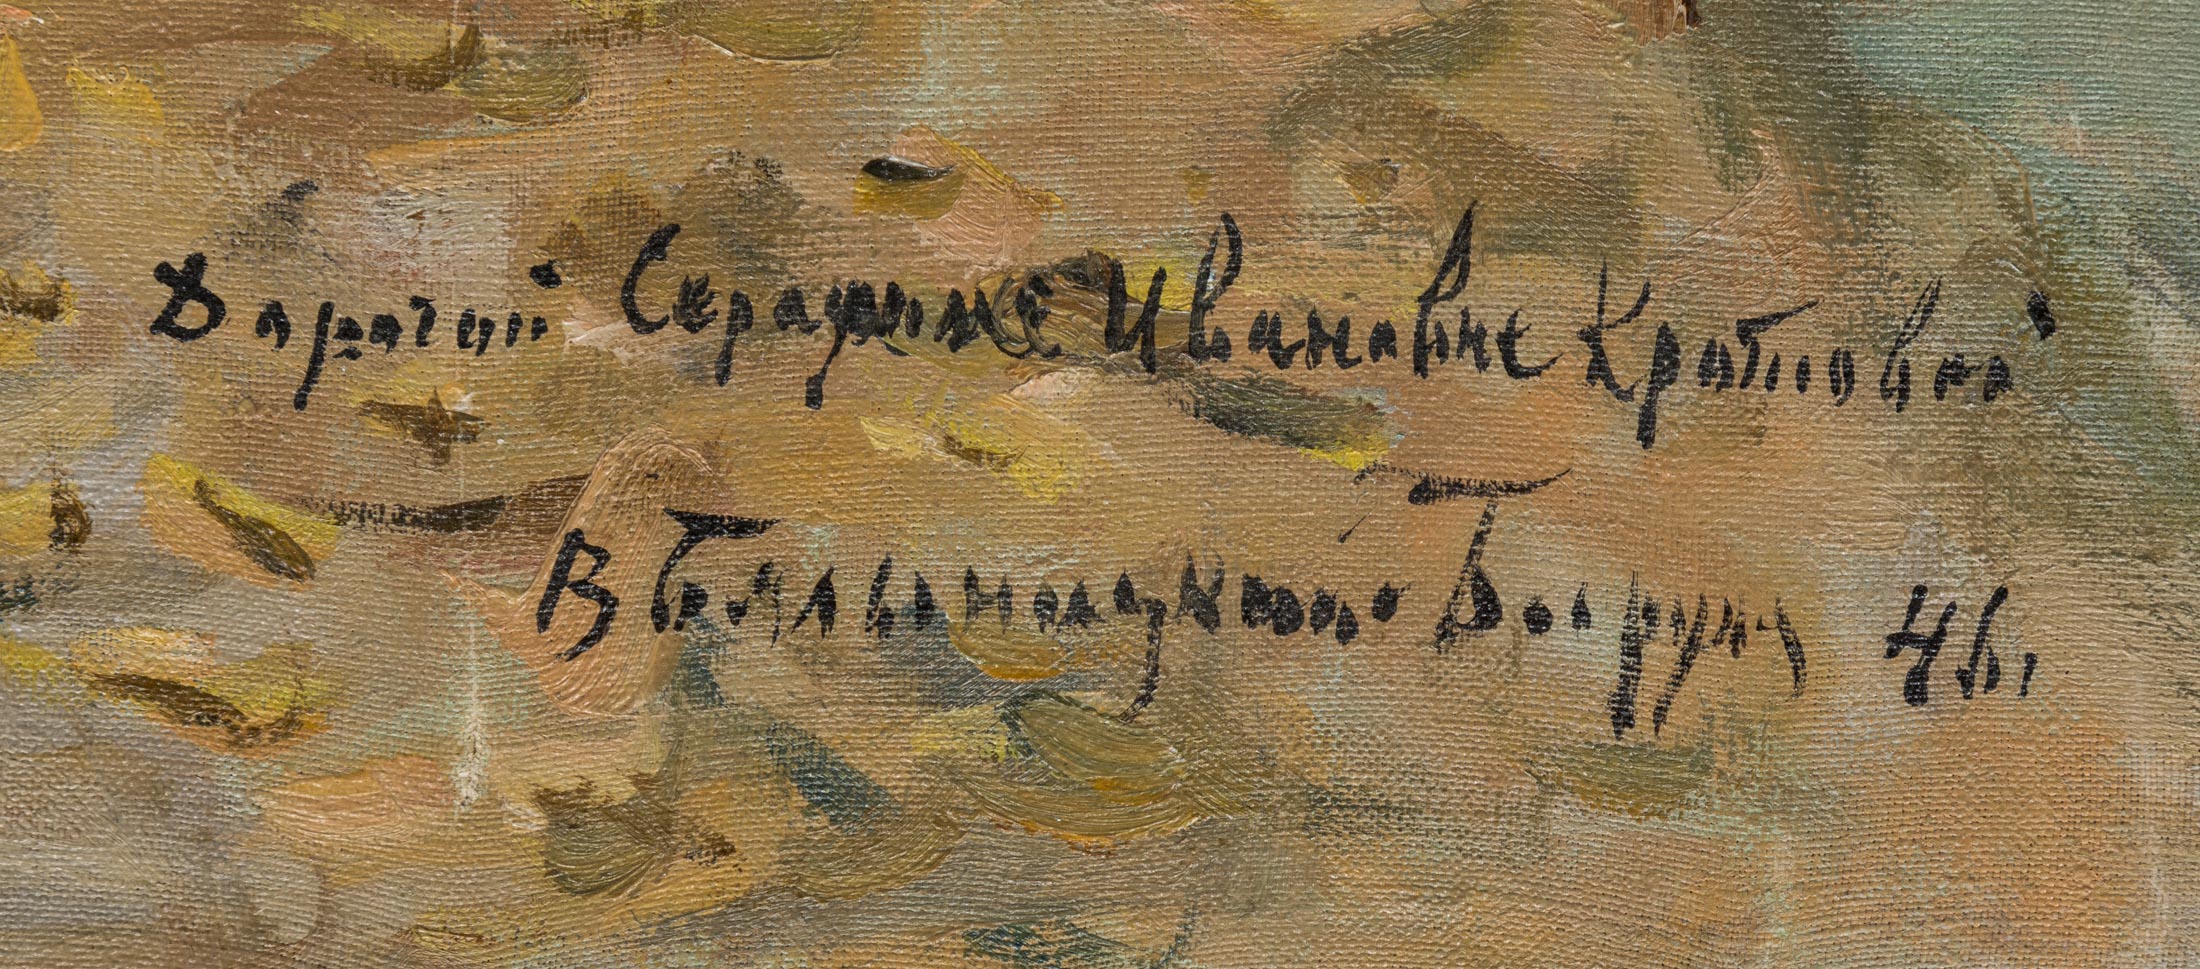 Дорогой Серафиме Ивановне Кротовой
В Бялыницкий-Бируля 46.